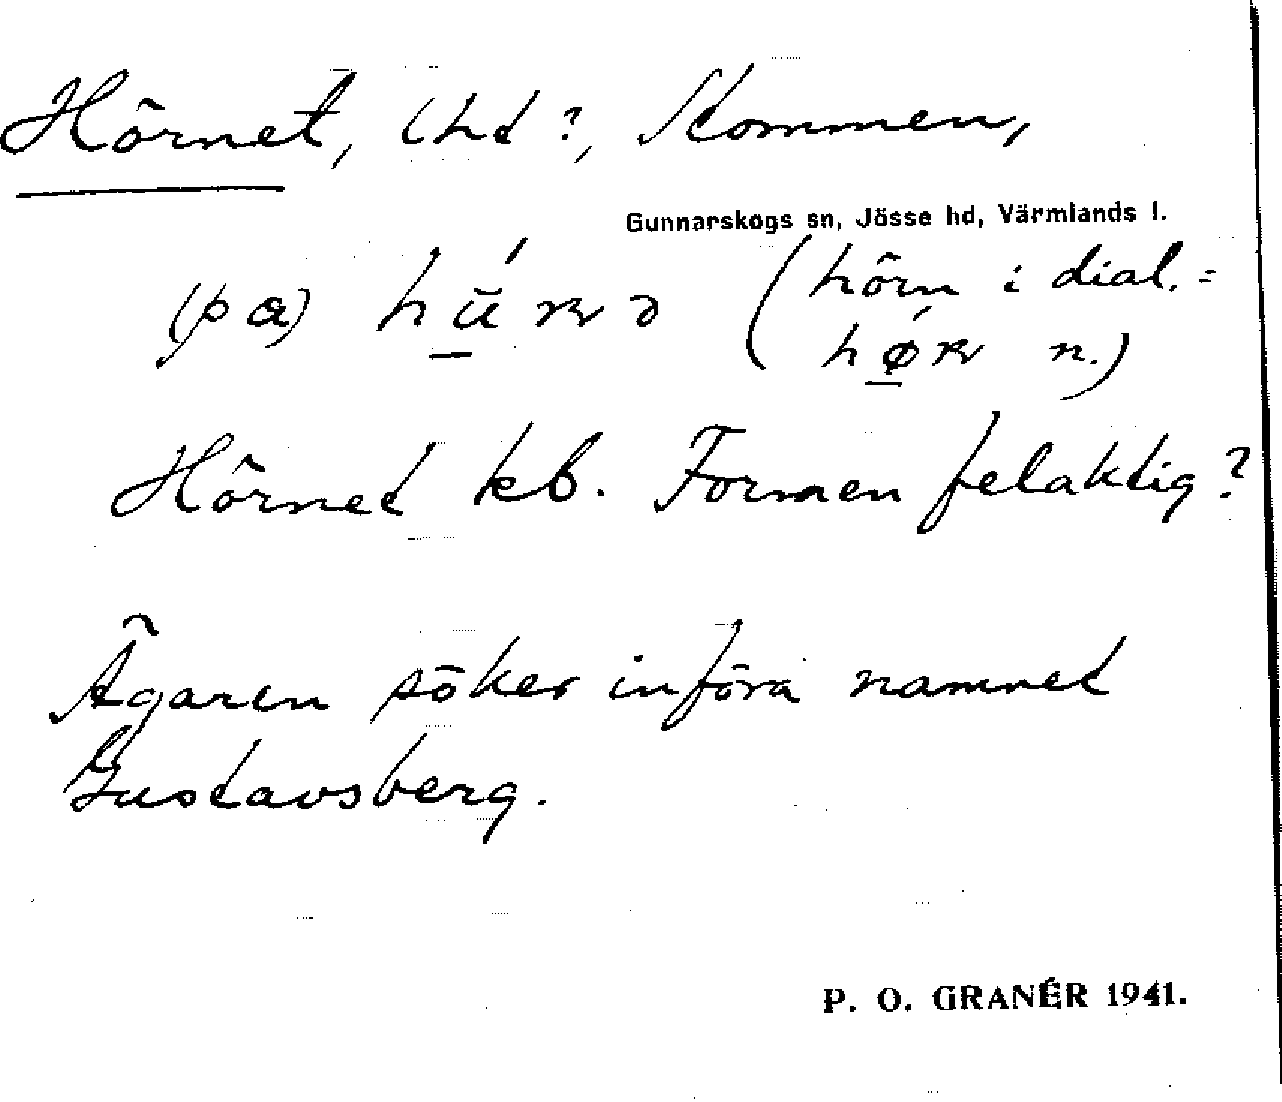 Hörnet, lht ?, Stommen,
Gunnarskogs sn, Jösse hd, Värmlands l.
(på) (hörn i dial. =
n.)
Hörnet kb. Formen felaktig?
Ägaren söker införa namnet
Gustavsberg.
P. O. GRANÉR 1941.